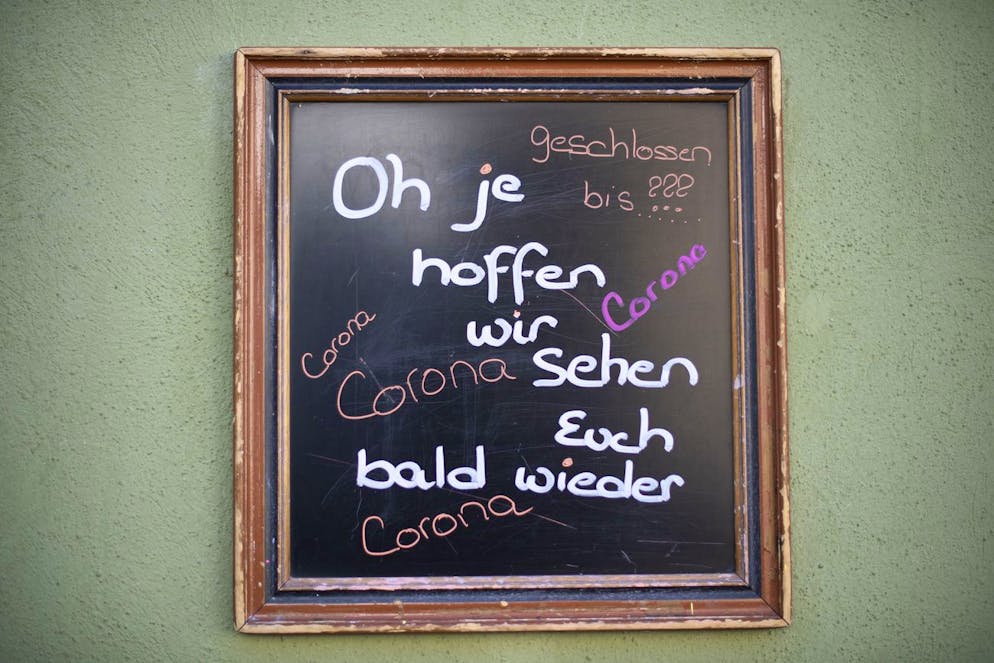 geschlossen
bis ???.....
Oh je
hoffen
Corona
wir
Corona
sehen
Corona
Euch
bald wieder
Corona